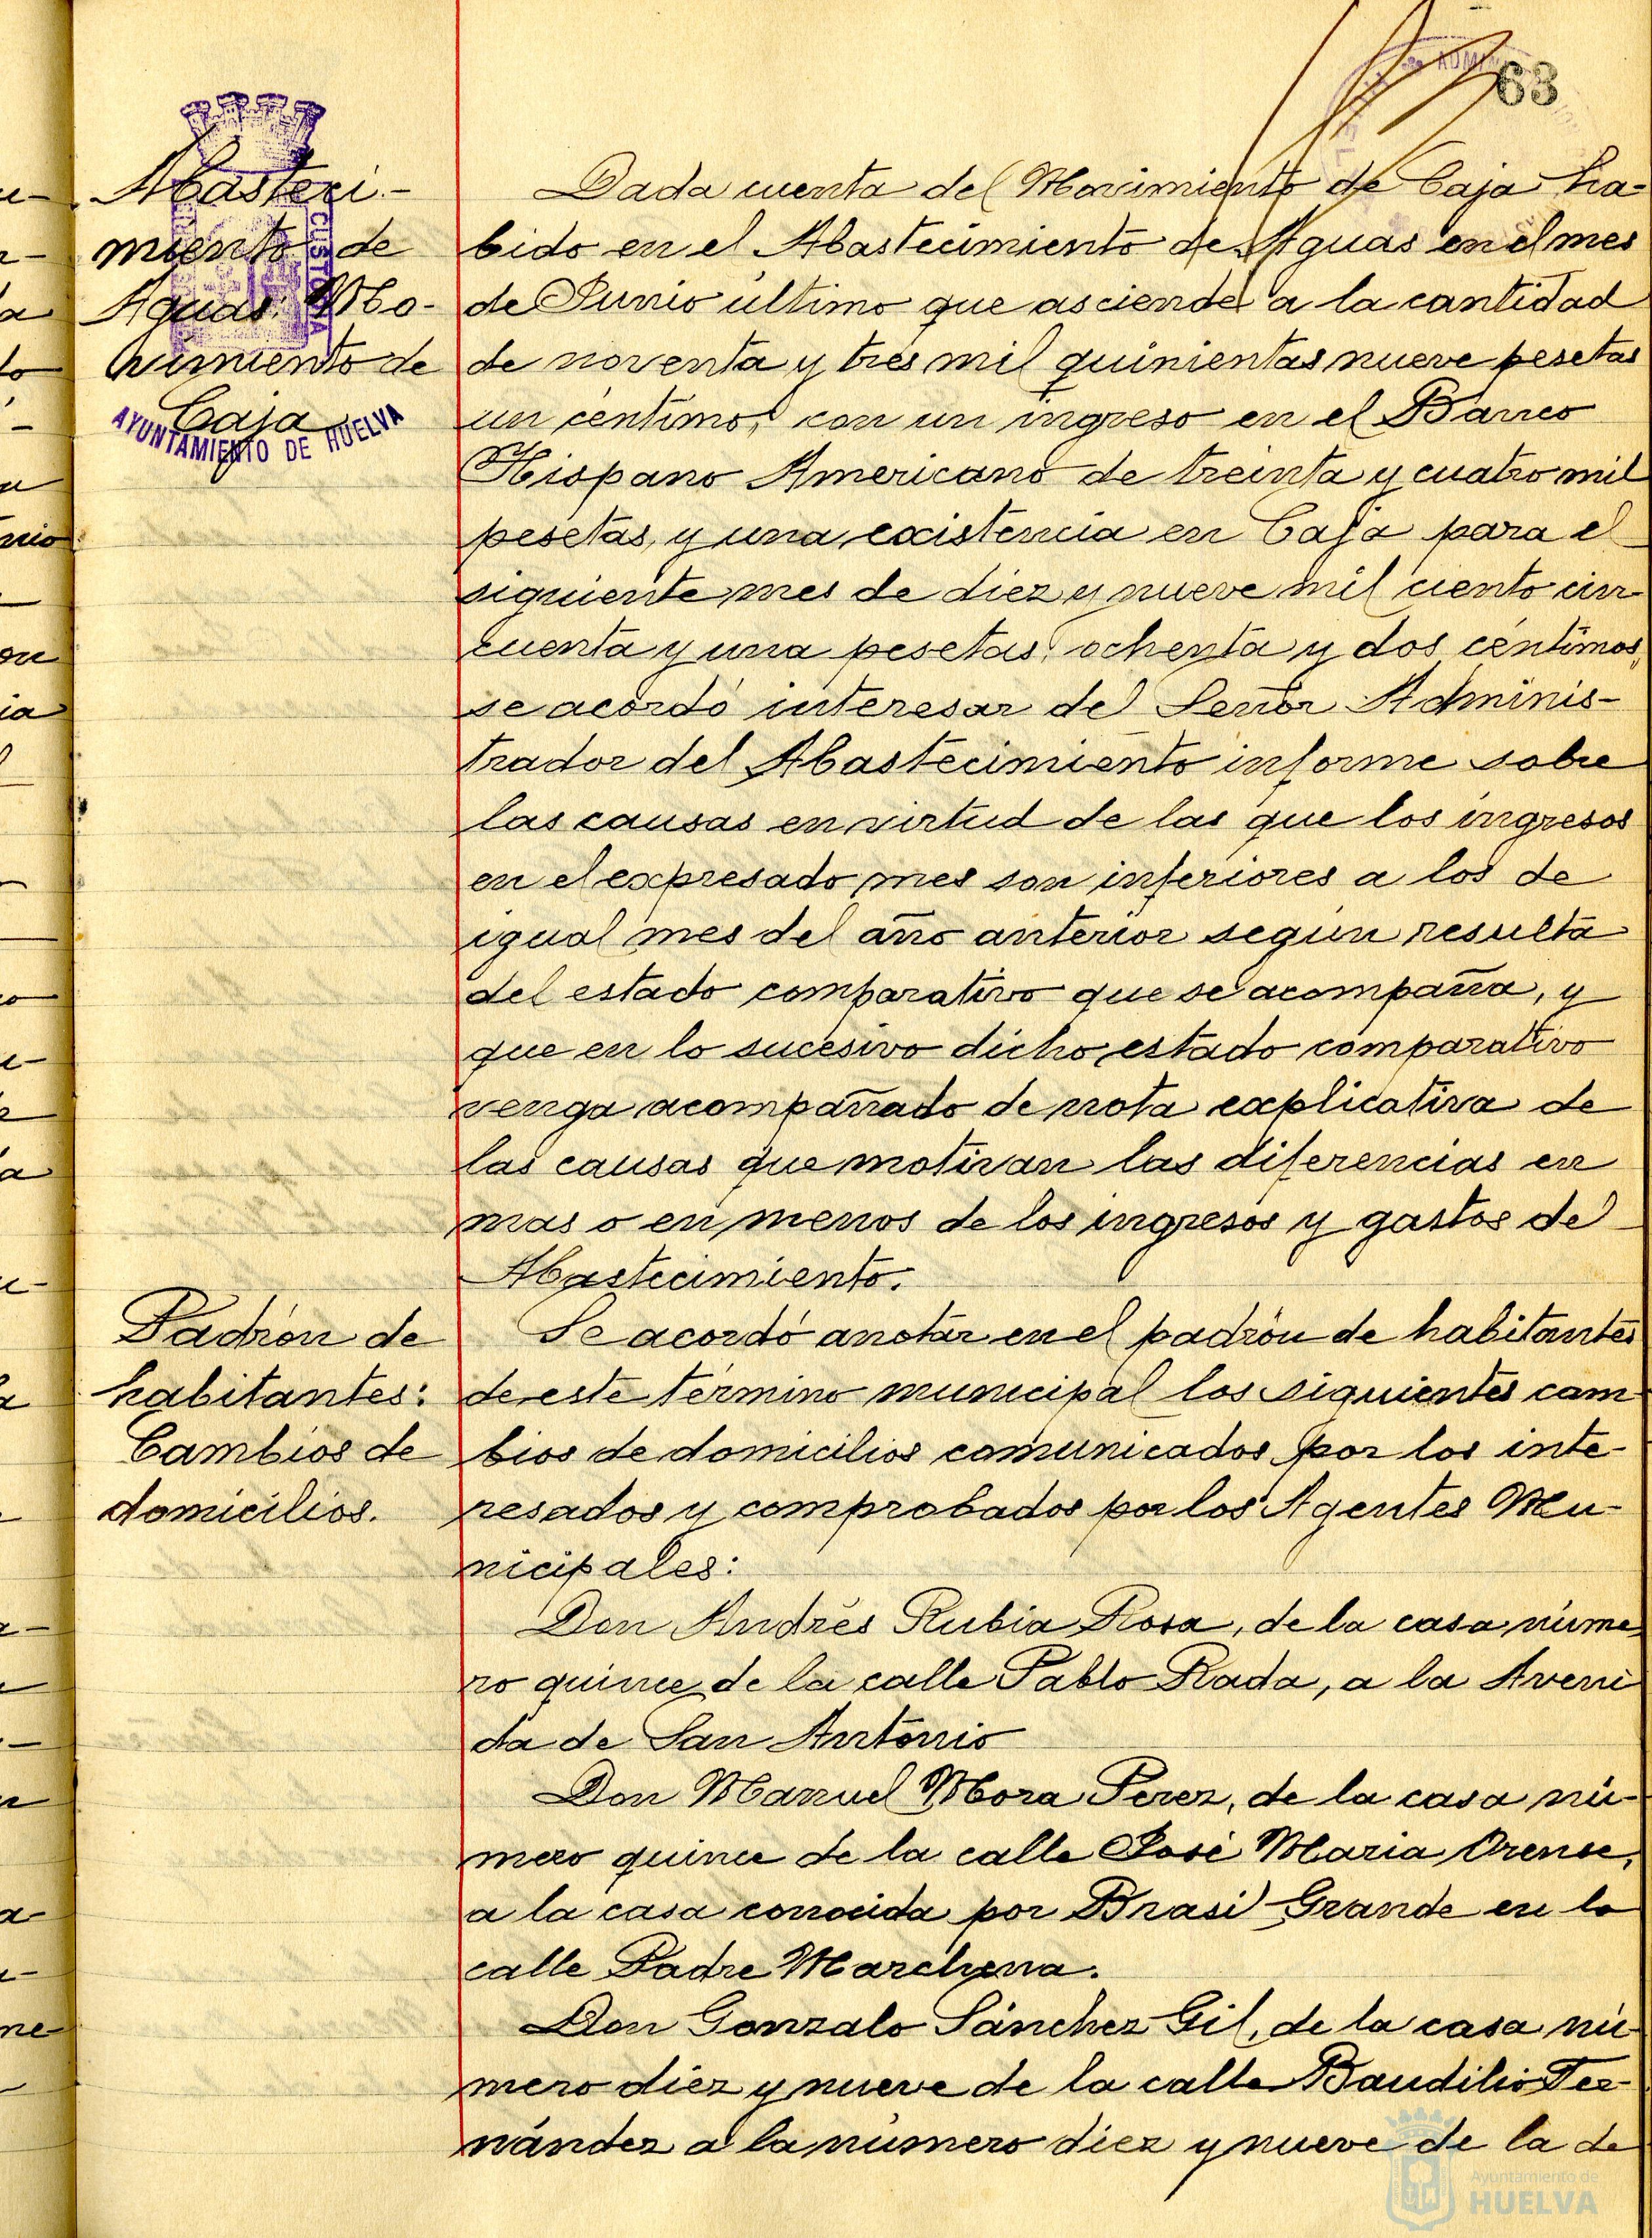 63
Abasteci-
miento de
Aguas: Mo-
vimiento de
Caja
CUSTODIA
AYUNTAMIENTO DE HUELVA
Dada cuenta del Movimiento de Caja ha-
bido en el Abastecimiento de Aguas en el mes
de Junio último que asciende a la cantidad
de noventa y tres mil quinientas nueve pesetas
un céntimo, con un ingreso en el Banco
Hispano Americano de treinta y cuatro mil
pesetas, y una existencia en Caja para el
siguiente mes de diez y nueve mil ciento cin-
cuenta y una pesetas, ochenta y dos céntimos,
se acordó interesar del Señor Adminis-
trador del Abastecimiento informe sobre
las causas en virtud de las que los ingresos
en el expresado mes son inferiores a los de
igual mes del año anterior según resulta
del estado comparativo que se acompaña, y
que en lo sucesivo dicho estado comparativo
venga acompañado de nota explicativa de
las causas que motivan las diferencias en
mas o en menos de los ingresos y gastos del
Abastecimiento.
Padrón de
habitantes:
Cambios de
domicilios.
Se acordó anotar en el padrón de habitantes
de este término municipal los siguientes cam
bios de domicilios comunicados por los inte-
resados y comprobados por los Agentes Mu-
nicipales:
Don Andrés Rubia Rosa, de la casa núme
ro quince de la calle Pablo Rada, a la Aveni
da de San Antonio
Don Manuel Mora Perez, de la casa nú-
mero quince de la calle José Maria Orense,
a la casa conocida por Brasil Grande en la
calle Padre Marchena.
Don Gonzalo Sánchez Gil, de la casa nú-
mero diez y nueve de la calle Baudilio Fer-
nández a la número diez y nueve de la de
Ayuntamiento de
HUELVA